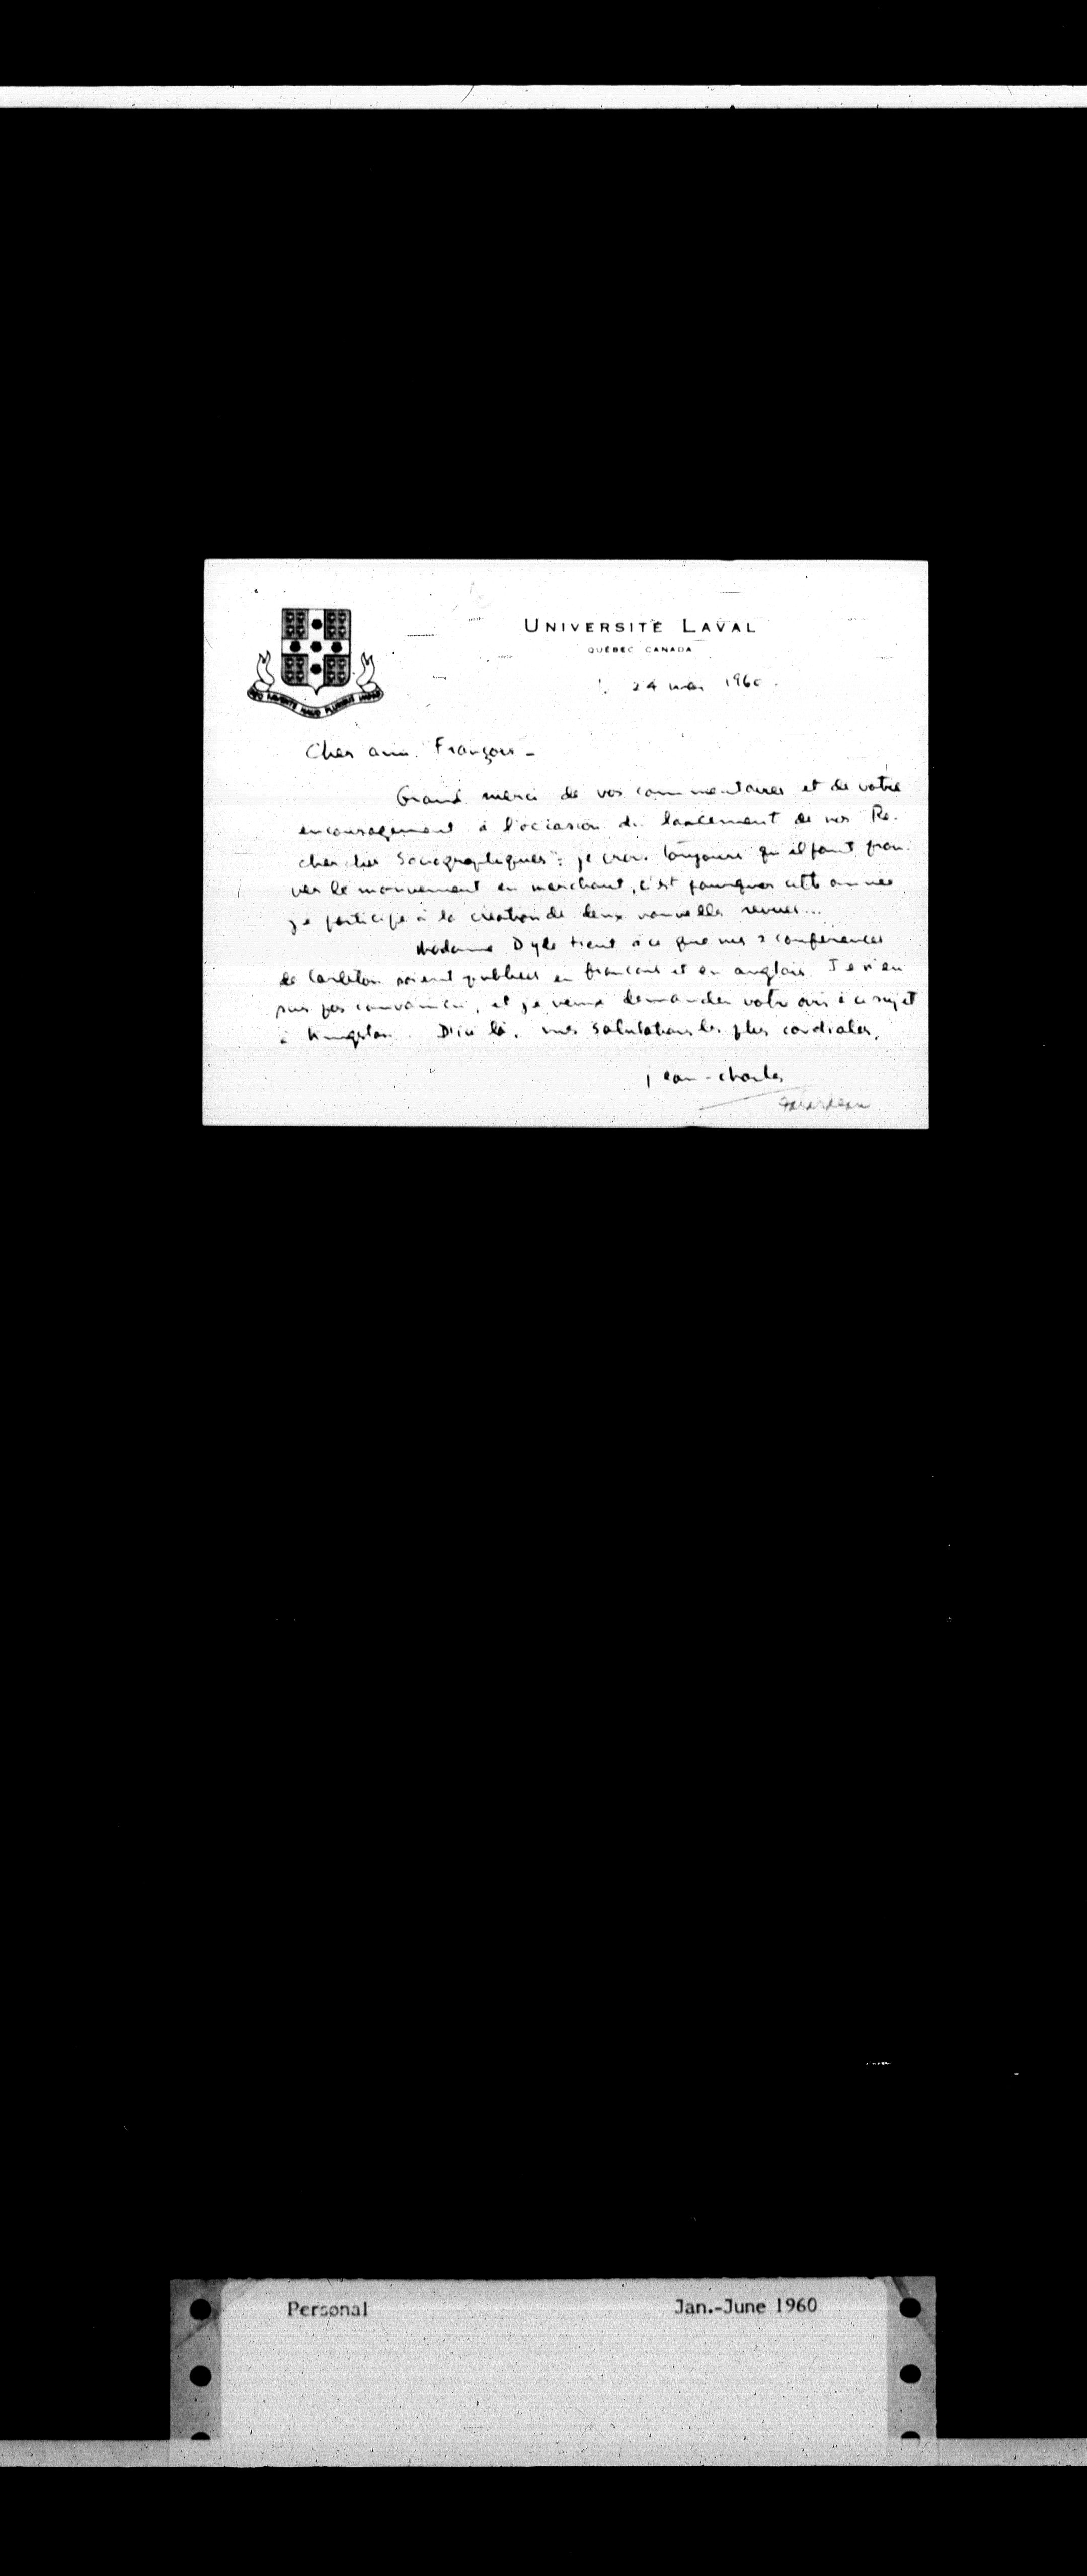 UNIVERSITÉ LAVAL
QUÉBEC CANADA
24 mai 1960.
Cher ami François -
Grand merci de vos commentaires et de votre
encouragement à l'occasion du lancement de nos "Re-
cherches Sociographiques": je crois toujours qu'il faut prou-
ver le mouvement en marchant, c'est pourquoi cette année
je participe à la création de deux nouvelles revues...
Madame Dyde tient à ce que mes 2 conférences
de Carleton soient publiées en français et en anglais. Je n'en
suis pas convaincu, et je veux demander votre avis à ce sujet
à Kingston. D'ici là, mes salutations les plus cordiales,
jean-charles
Falardeau
Personal
Jan.-June 1960